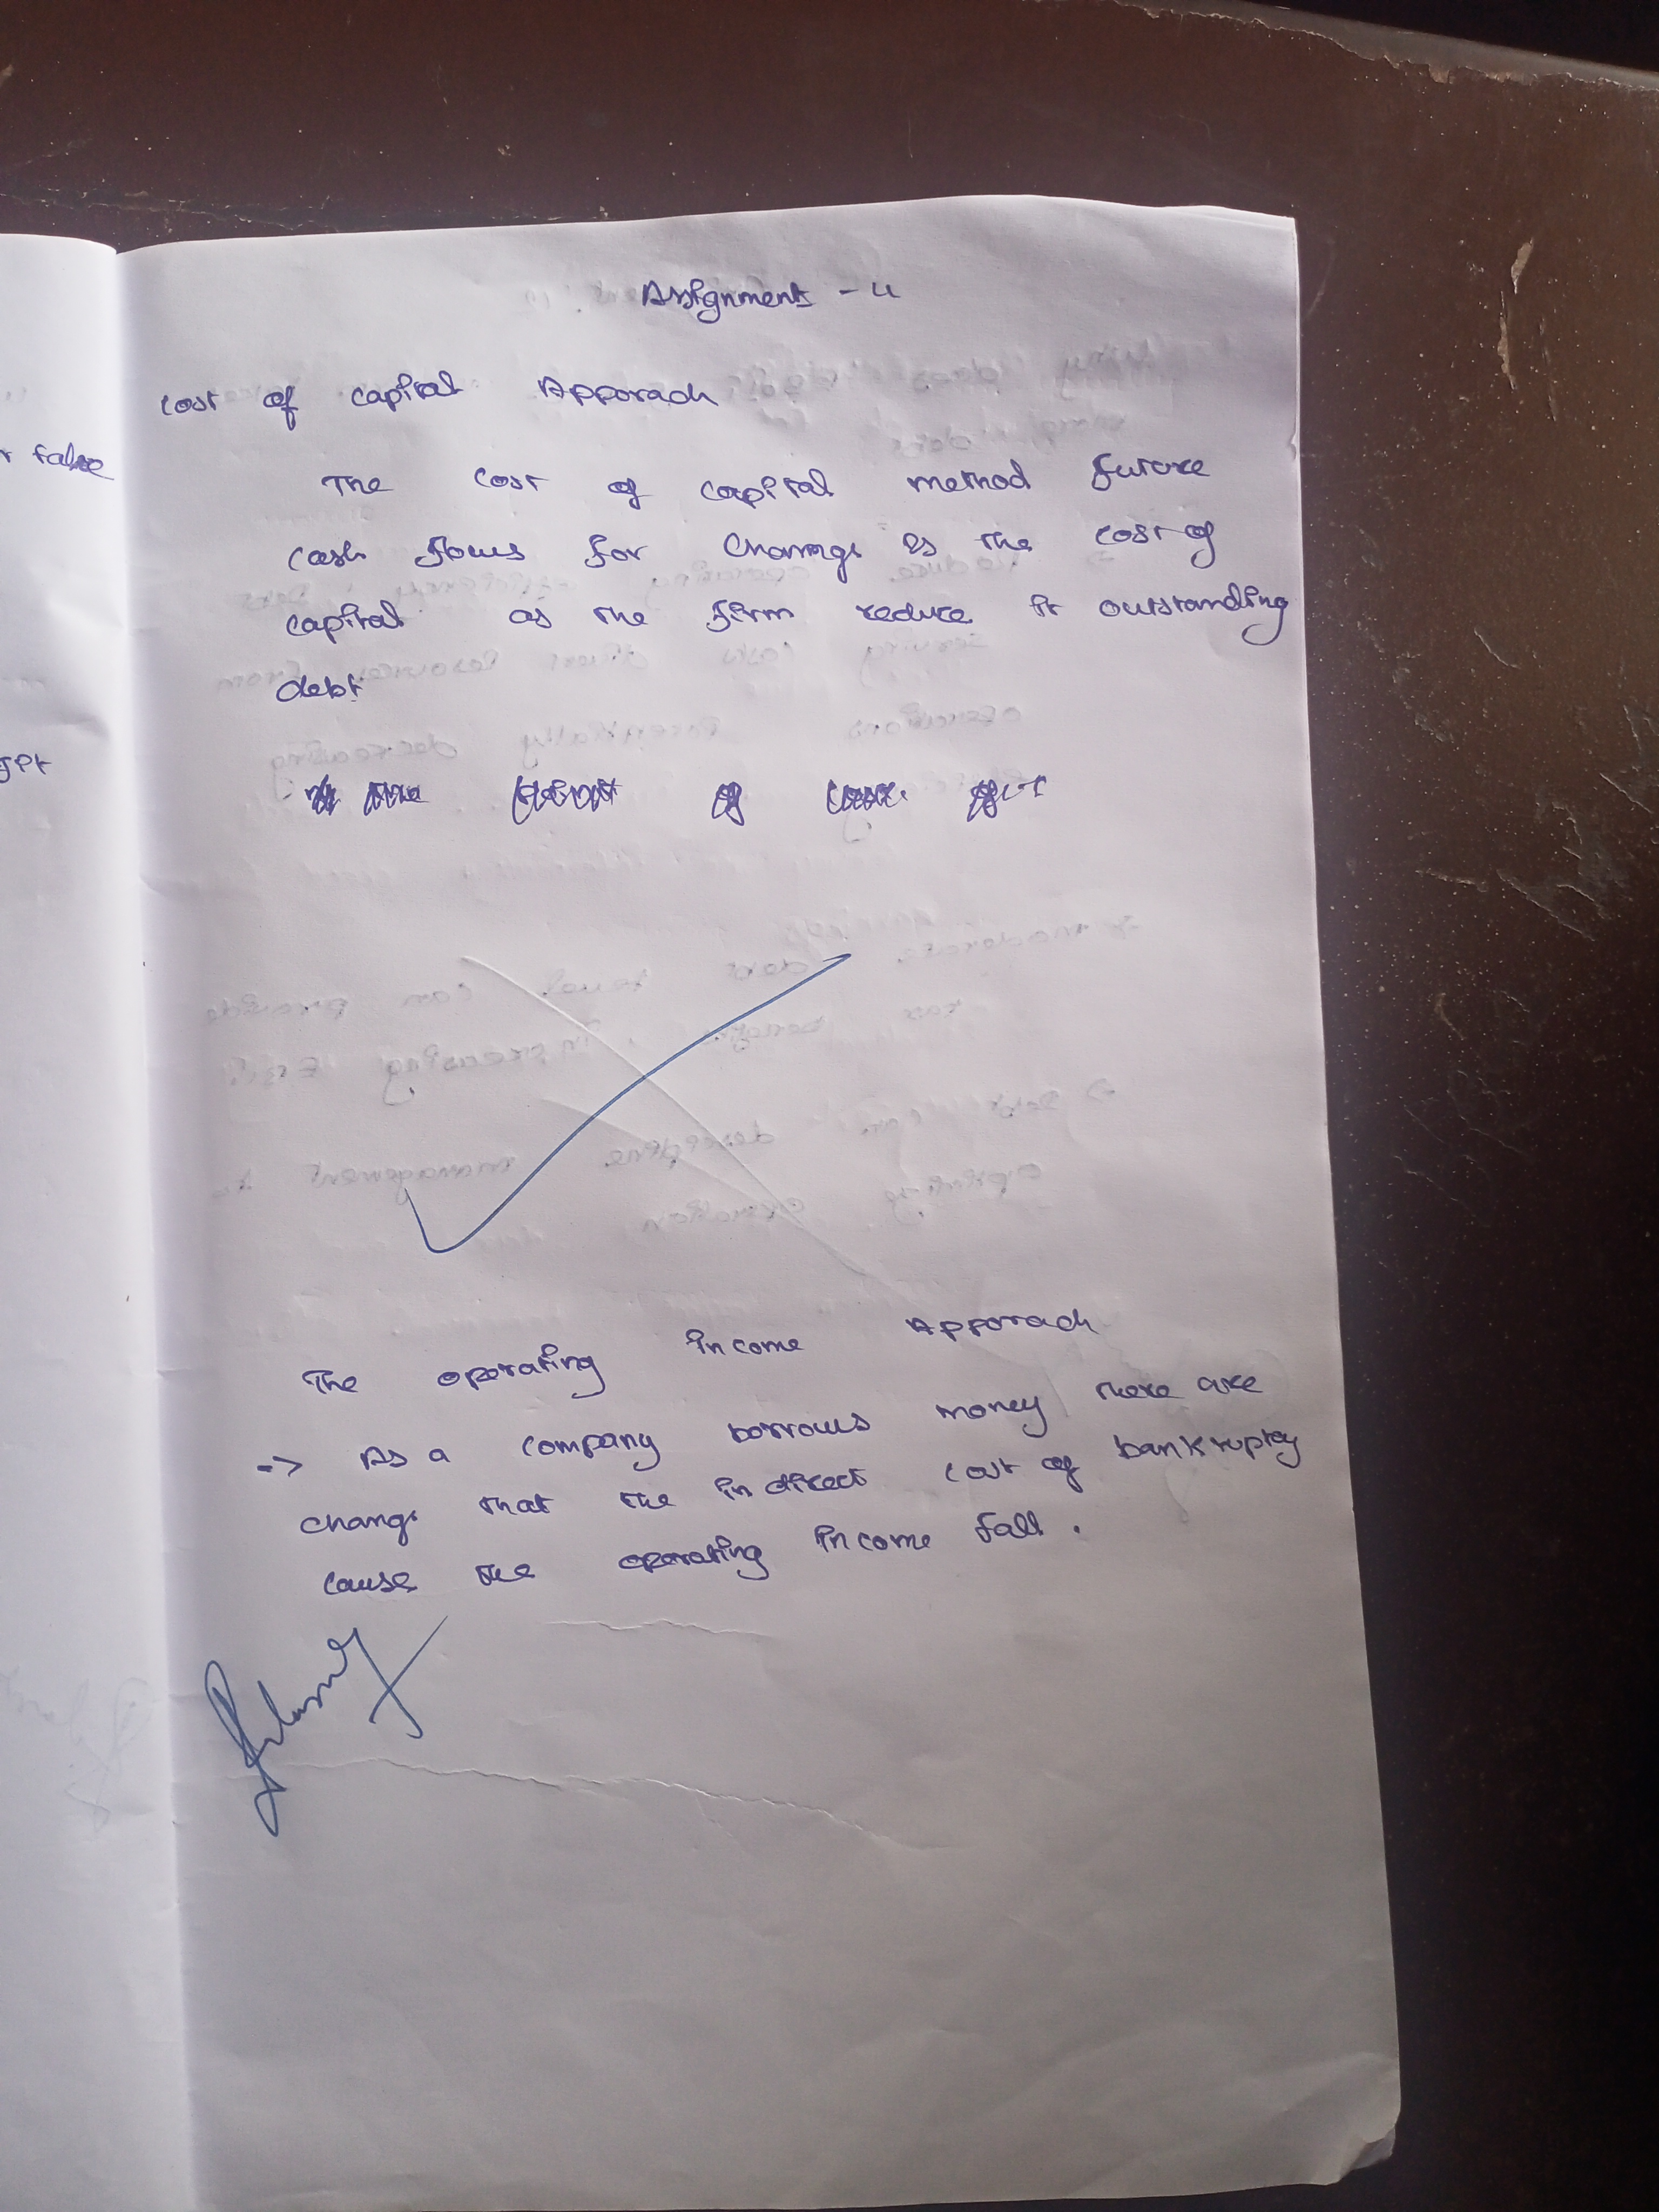 Assignment - 4
r false
Jpt
cost of capital Apporach
The cost of capital method future
cash flows for Change is the cost of
capital as the firm reduce it outstanding
debt
The operating income Apporach
-> As a company borrows money there are
change that the indirect cost of bankruptcy
cause the operating income fall.